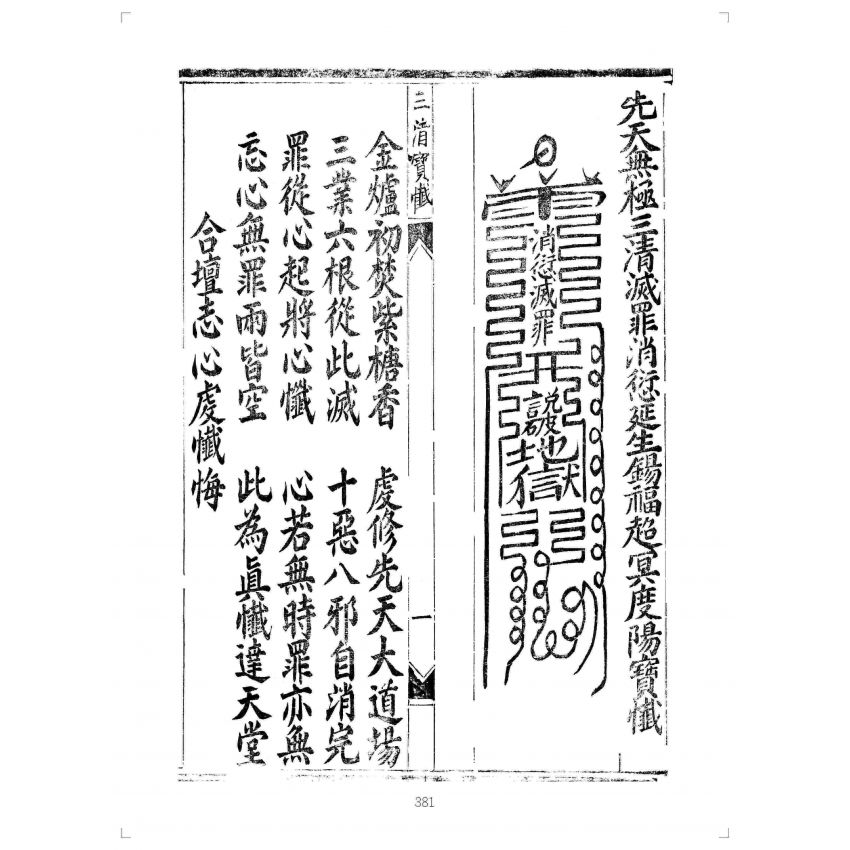 先天無極三清滅罪消愆延生錫福超冥度陽寶懺
消愆滅罪
説破地獄
三清寶懺
一
金爐初焚紫檀香 虔修先天大道場
三業六根從此滅 十惡八邪自消完
罪從心起將心懺 心若無時罪亦無
忘心無罪兩皆空 此為眞懺達天堂
合壇志心虔懺悔
381